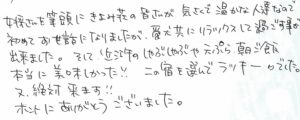 女将さんを筆頭にきよみ荘の皆さんが気さくで温かな人達なので
初めてお世話になりましたが、愛犬共にリラックスして過ごす事が
出来ました。そして近江牛のしゃぶしゃぶや天ぷら朝ご飯
本当に美味しかった!! この宿を選んでラッキーでした。
又、絶対来ます!!
ホントにありがとうございました。